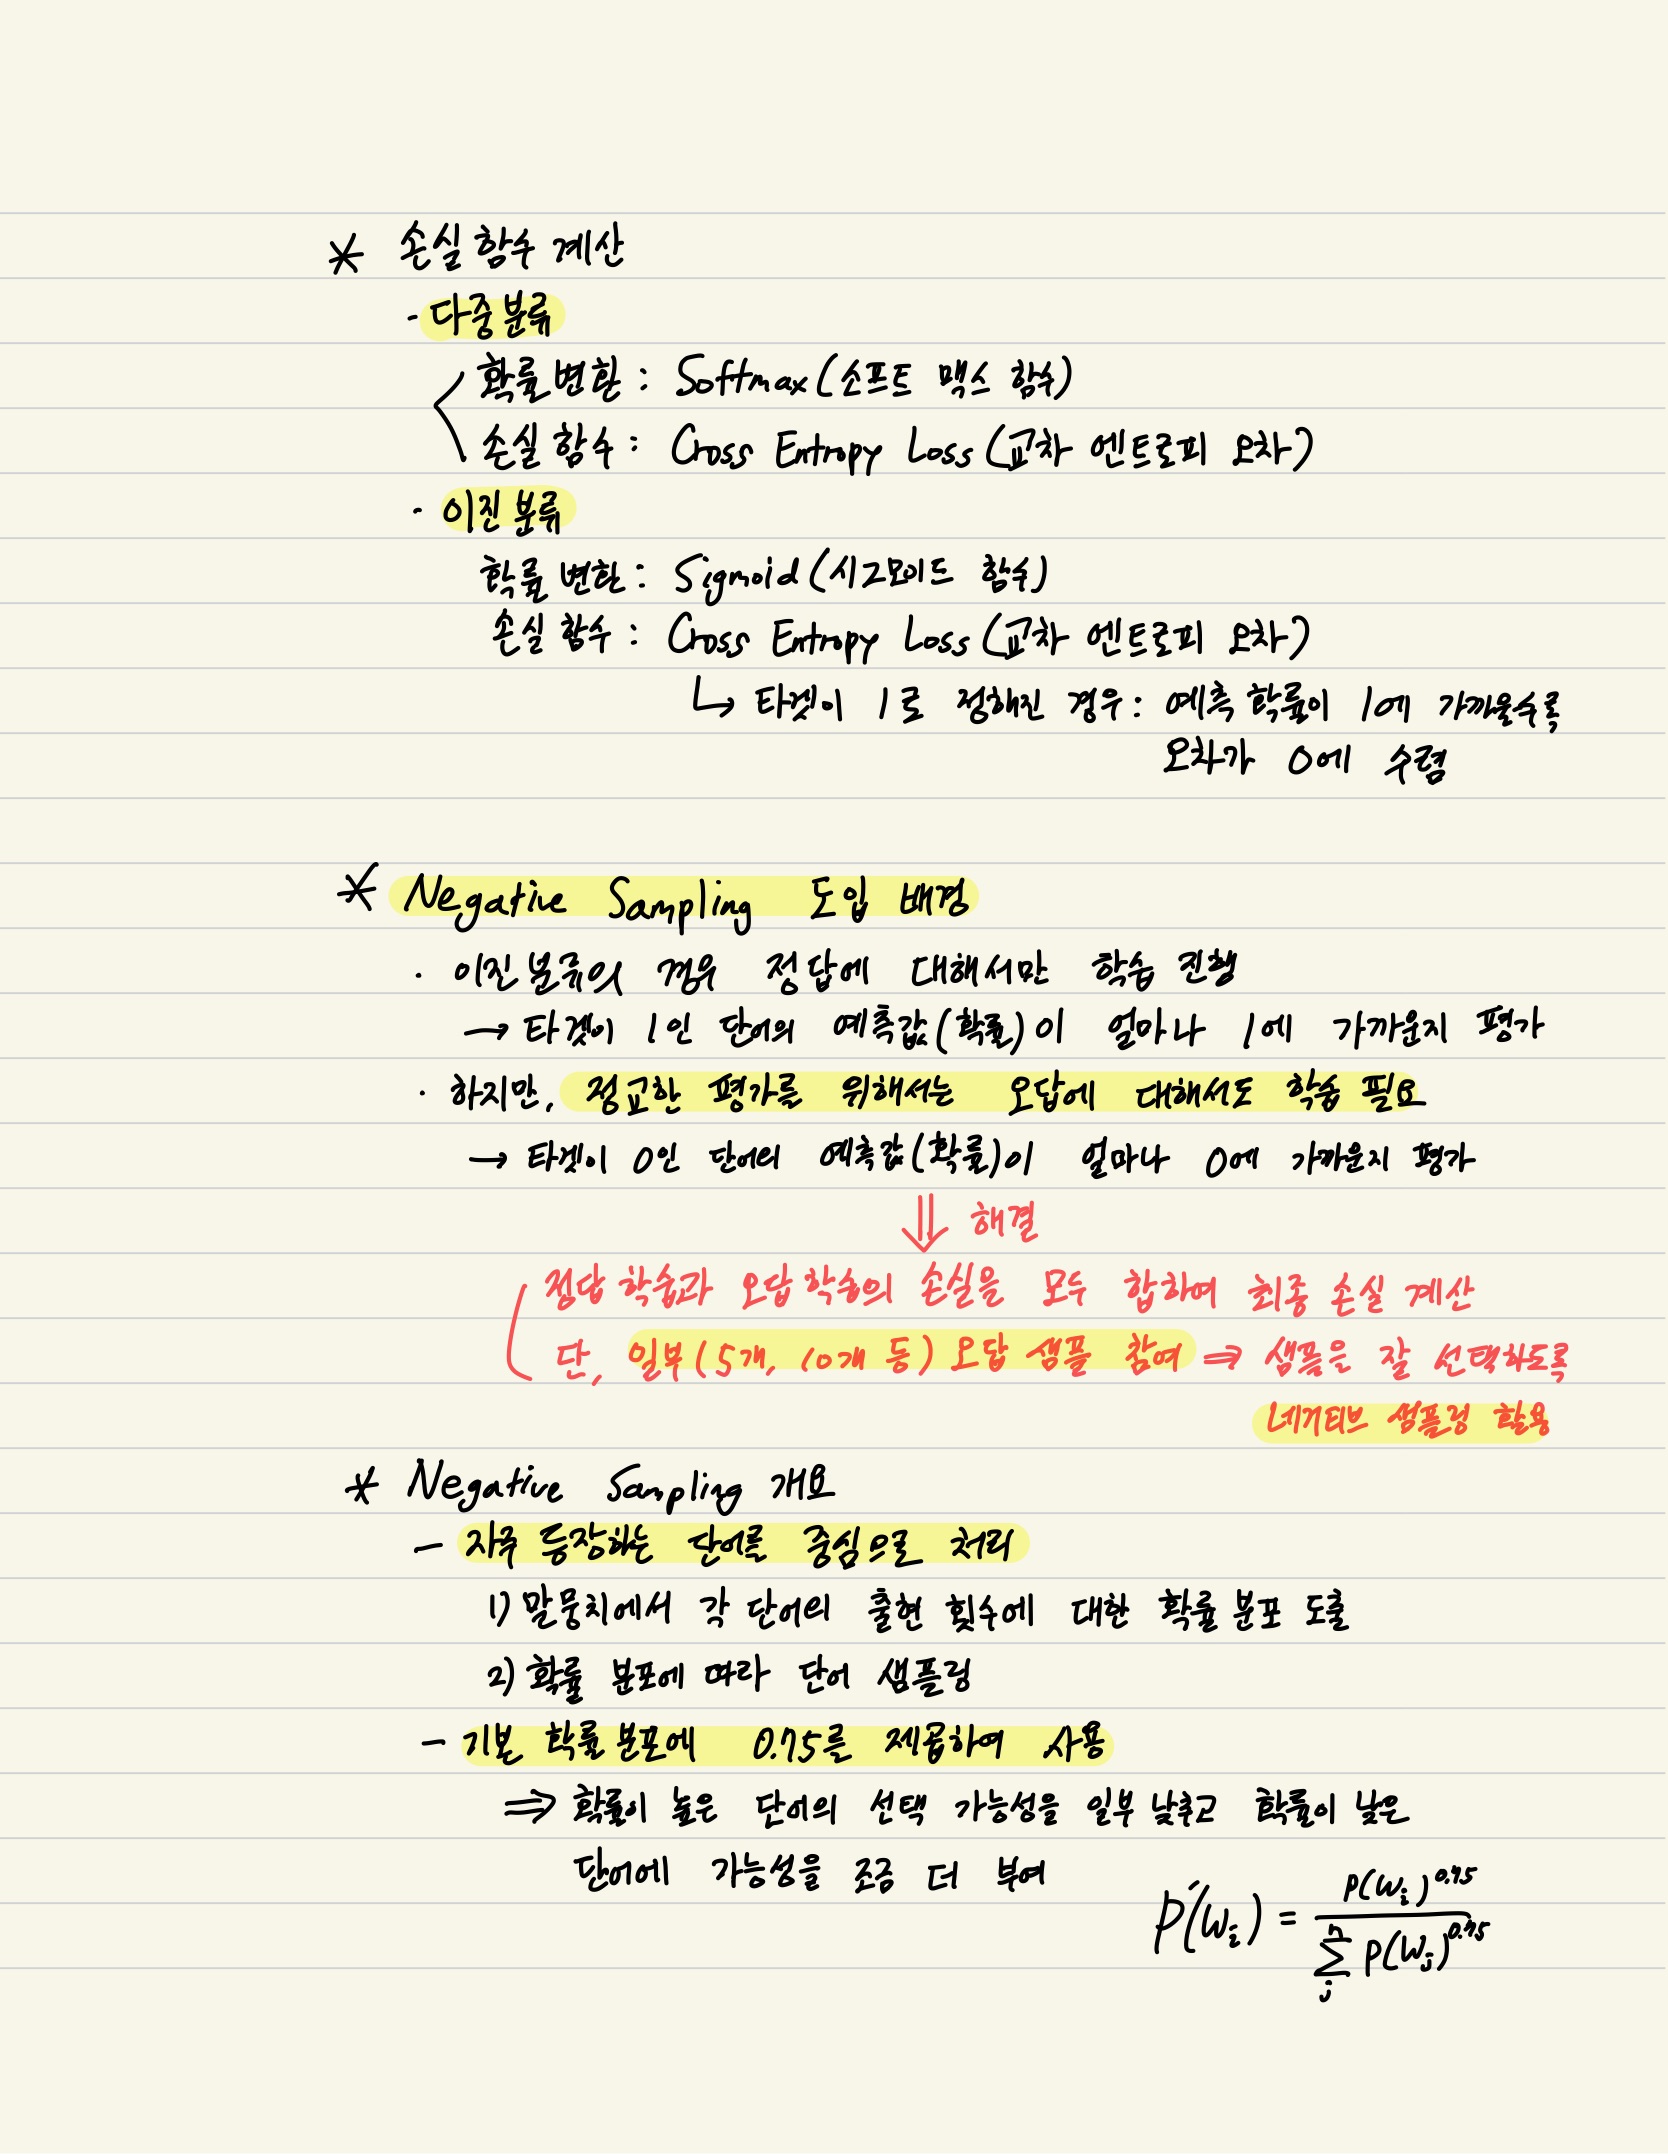 * 손실 함수 계산
- 다중 분류
확률 변환 : Softmax (소프트 맥스 함수)
손실 함수 : Cross Entropy Loss (교차 엔트로피 오차)
· 이진 분류
확률 변환 : Sigmoid (시그모이드 함수)
손실 함수 : Cross Entropy Loss (교차 엔트로피 오차)
↳ 타겟이 1로 정해진 경우 : 예측 확률이 1에 가까울수록
오차가 0에 수렴
* Negative Sampling 도입 배경
· 이진 분류의 경우 정답에 대해서만 학습 진행
→ 타겟이 1인 단어의 예측값(확률)이 얼마나 1에 가까운지 평가
· 하지만, 정교한 평가를 위해서는 오답에 대해서도 학습 필요
→ 타겟이 0인 단어의 예측값(확률)이 얼마나 0에 가까운지 평가
⇓ 해결
정답 학습과 오답 학습의 손실을 모두 합하여 최종 손실 계산
단, 일부(5개, 10개 등) 오답 샘플 참여 ⇒ 샘플은 잘 선택하도록
네거티브 샘플링 활용
* Negative Sampling 개요
- 자주 등장하는 단어를 중심으로 처리
1) 말뭉치에서 각 단어의 출현 횟수에 대한 확률 분포 도출
2) 확률 분포에 따라 단어 샘플링
- 기본 확률 분포에 0.75를 제곱하여 사용
⇒ 확률이 높은 단어의 선택 가능성을 일부 낮추고 확률이 낮은
단어에 가능성을 조금 더 부여
P'(w_i) = P(w_i)^0.75 / Σ_j^n P(w_j)^0.75